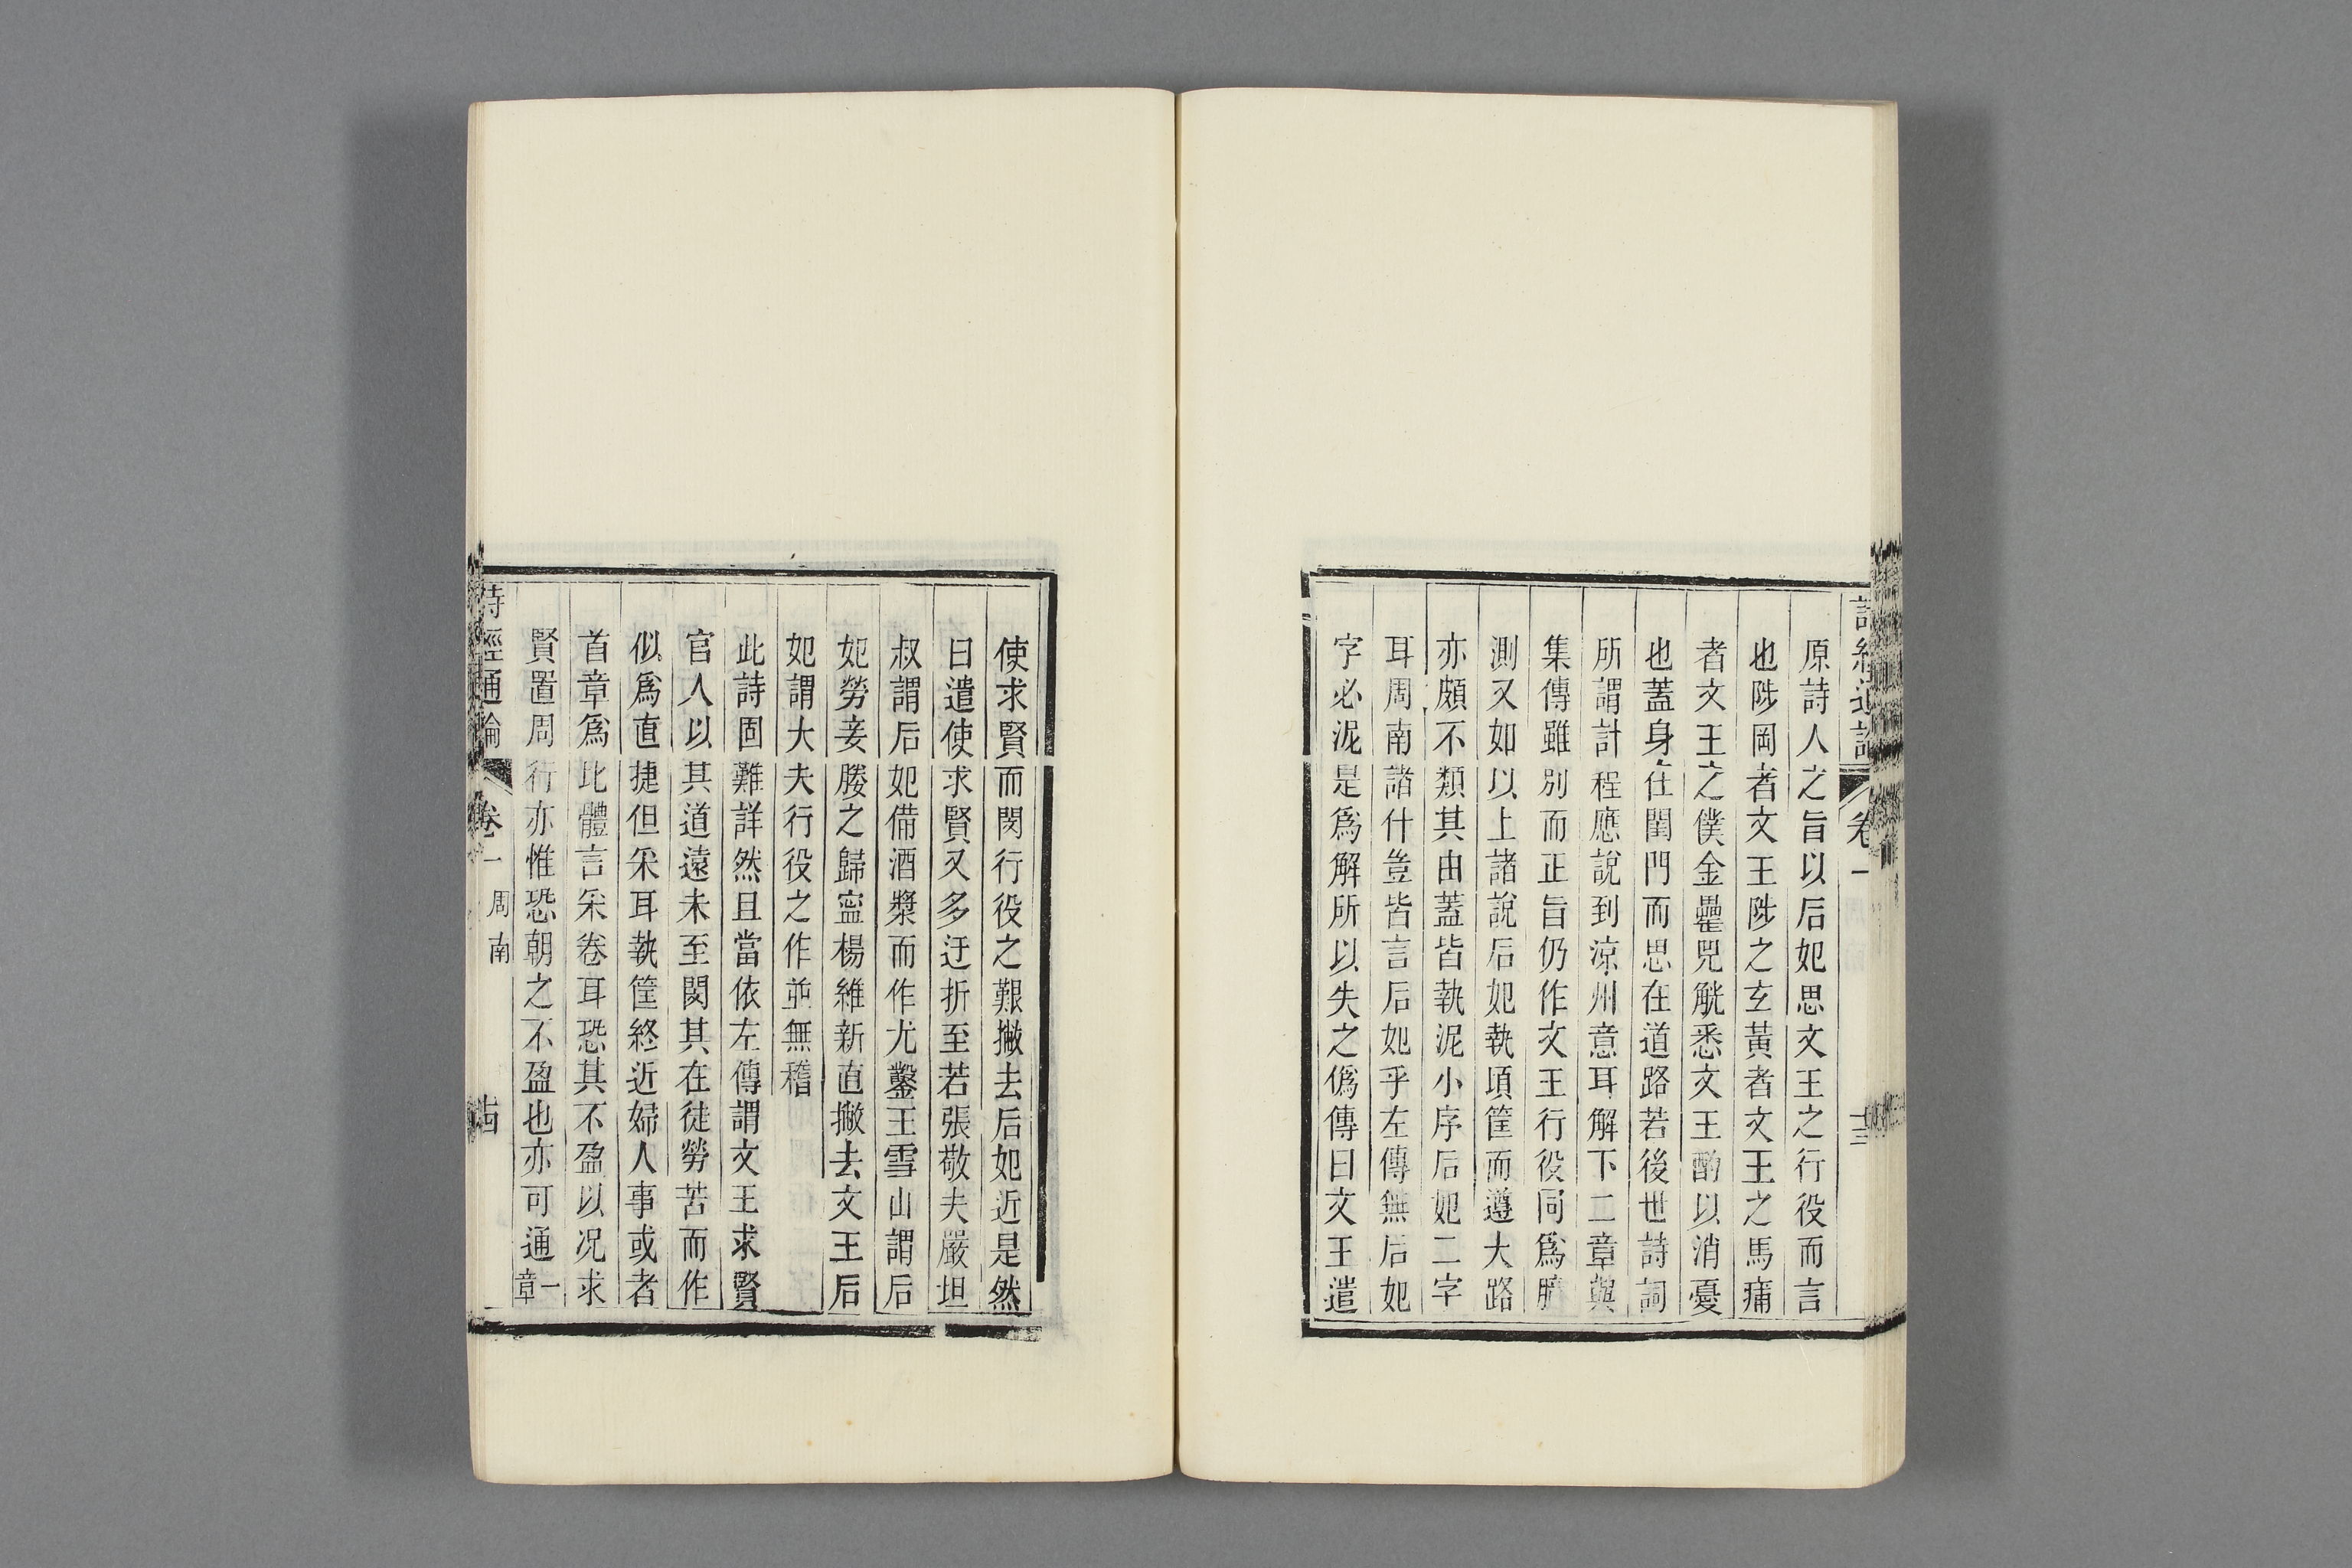 詩經通論
卷一
十三
原詩人之旨以后妃思文王之行役而言
也陟岡者文王陟之玄黃者文王之馬痡
者文王之僕金罍兕觥悉文王酌以消憂
也蓋身在閨門而思在道路若後世詩詞
所謂計程應說到涼州意耳解下二章與
集傳雖別而正旨仍作文王行役同爲臆
測又如以上諸說后妃執頃筐而遵大路
亦頗不類其由蓋皆執泥小序后妃二字
耳周南諸什豈皆言后妃乎左傳無后妃
字必泥是爲解所以失之僞傳曰文王遣
使求賢而閔行役之艱撇去后妃近是然
曰遣使求賢又多迂折至若張敬夫嚴坦
叔謂后妃備酒漿而作尤鑿王雪山謂后
妃勞妾媵之歸寍楊維新直撇去文王后
妃謂大夫行役之作並無稽
此詩固難詳然且當依左傳謂文王求賢
官人以其道遠未至閔其在徒勞苦而作
似爲直捷但采耳執筐終近婦人事或者
首章爲比體言采卷耳恐其不盈以况求
賢置周行亦惟恐朝之不盈也亦可通一章
詩經通論
卷一
周南
十四